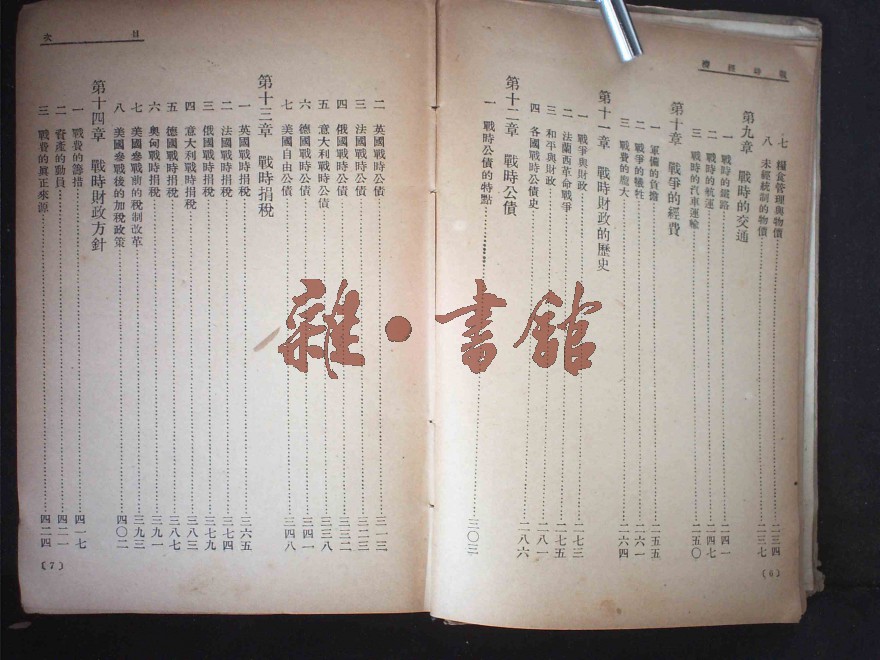 戰時經濟
七 糧食管理與物價……二三四
八 未經統制的物價……二三七
第九章 戰時的交通
一 戰時的鐵路……二四一
二 戰時的航運……二四七
三 戰時的汽車運輸……二五〇
第十章 戰爭的經費
一 軍備的負擔……二五五
二 戰爭的犧牲……二六一
三 戰費的龐大……二六四
第十一章 戰時財政的歷史
一 戰爭與財政……二七三
二 法蘭西革命戰爭……二七五
三 和平與財政……二八一
四 各國戰時公債史……二八六
第十二章 戰時公債
一 戰時公債的特點……三〇三
(6)
目次
二 英國戰時公債……三一三
三 法國戰時公債……三二三
四 俄國戰時公債……三三二
五 意大利戰時公債……三三八
六 德國戰時公債……三四一
七 美國自由公債……三四八
第十三章 戰時捐稅
一 英國戰時捐稅……三六五
二 法國戰時捐稅……三七四
三 俄國戰時捐稅……三七九
四 意大利戰時捐稅……三八三
五 德國戰時捐稅……三八七
六 奧匈戰時捐稅……三九一
七 美國參戰前的稅制改革……三九三
八 美國參戰後的加稅政策……四〇二
第十四章 戰時財政方針
一 戰費的籌措……四一七
二 資產的動員……四二一
三 戰費的眞正來源……四二四
(7)
雜·書館